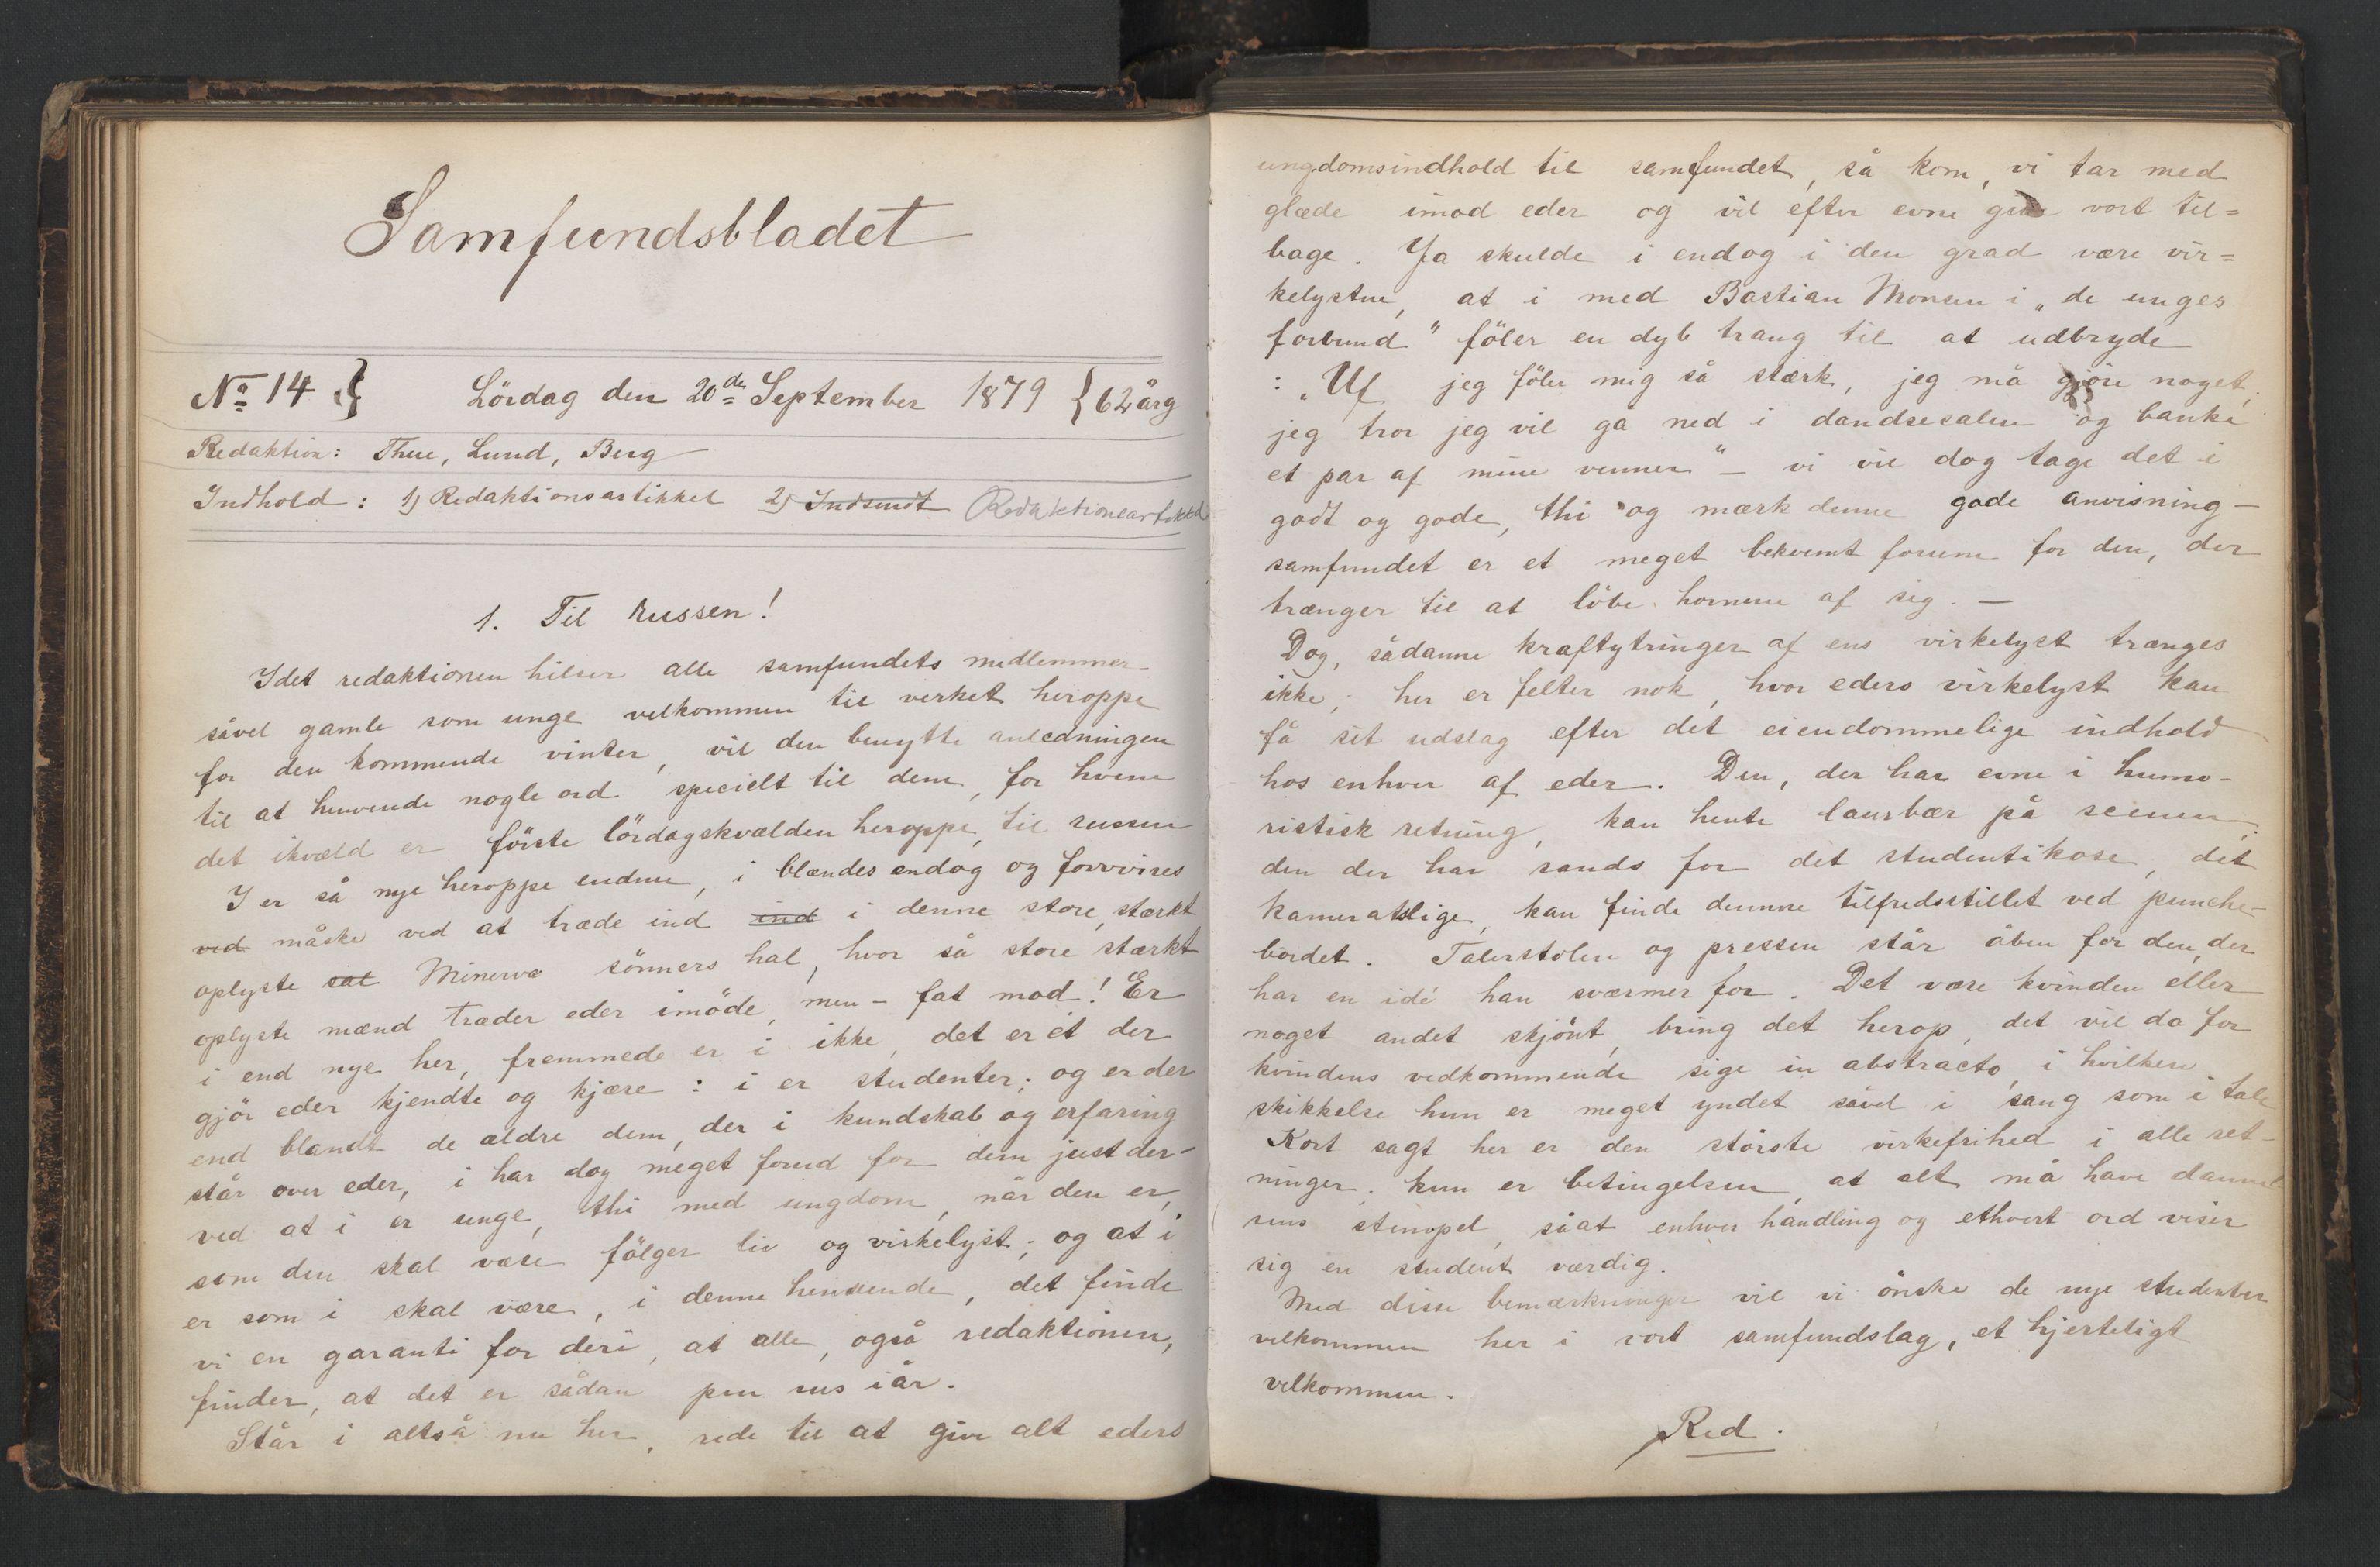 Samfundsbladet
No 14 } Lördag den 20de September 1879 { 62 årg
Redaktion: Thue, Lund, Berg
Indhold: 1) Redaktionsartikkel 2) Indsendt Redaktionsartikkel
1. Til Russen!
Idet redaktionen hilser alle samfundets medlemmer
såvel gamle som unge velkommen til verket heroppe
for den kommende vinter, vil den benytte anledningen
til at henvende nogle ord specielt til dem, for hvem
det ikvæld er förste lördagskvælden heroppe, til russen
I er så nye heroppe endnu, i blændes endog og forvires
ved måske ved at træde ind ind i denne store, stærkt
oplyste sal Minervæ sönners hal, hvor så store stærkt
oplyste mænd træder eder imöde, men – fat mod! Er
i end nye her, fremmede er i ikke, det er ét der
gjör eder kjendte og kjære: i er studenter; og er der
end blandt de ældre dem, der i kundskab og erfaring
står over eder, i har dog meget forud for dem just der-
ved at i er unge, thi med ungdom, når den er,
som den skal være fölger liv og virkelyst; og at i
er som i skal være, i denne henseende, det finde
vi en garanti for deri, at alle, også redaktionen,
finder, at det er sådan pen rus iår.
Står i altså nu her, rede til at give alt eders
ungdomsindhold til samfundet, så kom, vi tar med
glæde imod eder og vil efter evne give vort til=
bage. Ja skulde i endog i den grad være vir=
kelystne, at i med Bastian Monsen i „de unges
forbund" föler en dyb trang til at udbryde
: „Uf jeg föler mig så stærk, jeg må gjöre noget,
jeg tror jeg vil gå ned i dandsesalen og banke
et par af mine venner" – vi vil dog tage det i
godt og gode, thi og mærk denne gode anvisning –
samfundet er et meget bekvemt forum for den, der
trænger til at löbe hornene af sig. –
Dog, sådanne kraftytringer af ens virkelyst trænges
ikke; her er felter nok, hvor eders virkelyst kan
få sit udslag efter det eiendommelige indhold
hos enhver af eder. Den, der har evne i humo-
ristisk retning, kan hente laurbær på scenen,
den der har sands for det studentikose, det
kameratslige, kan finde denne tilfredsstillet ved punche-
bordet. Talerstolen og pressen står åben for den, der
har en idé han sværmer for. Det være kvinden eller
noget andet skjönt, bring det herop, det vil da for
kvindens vedkommende sige in abstracto, i hvilken
skikkelse hun er meget yndet såvel i sang som i tale
Kort sagt her er den störste virkefrihed i alle ret-
ninger; kun er betingelsen, at alt må have dannel
sens stempel, såat enhver handling og ethvert ord viser
sig en student værdig.
Med disse bemærkninger vil vi önske de nye studenter
velkommen her i vort samfundslag, et hjerteligt
velkommen.
Red.